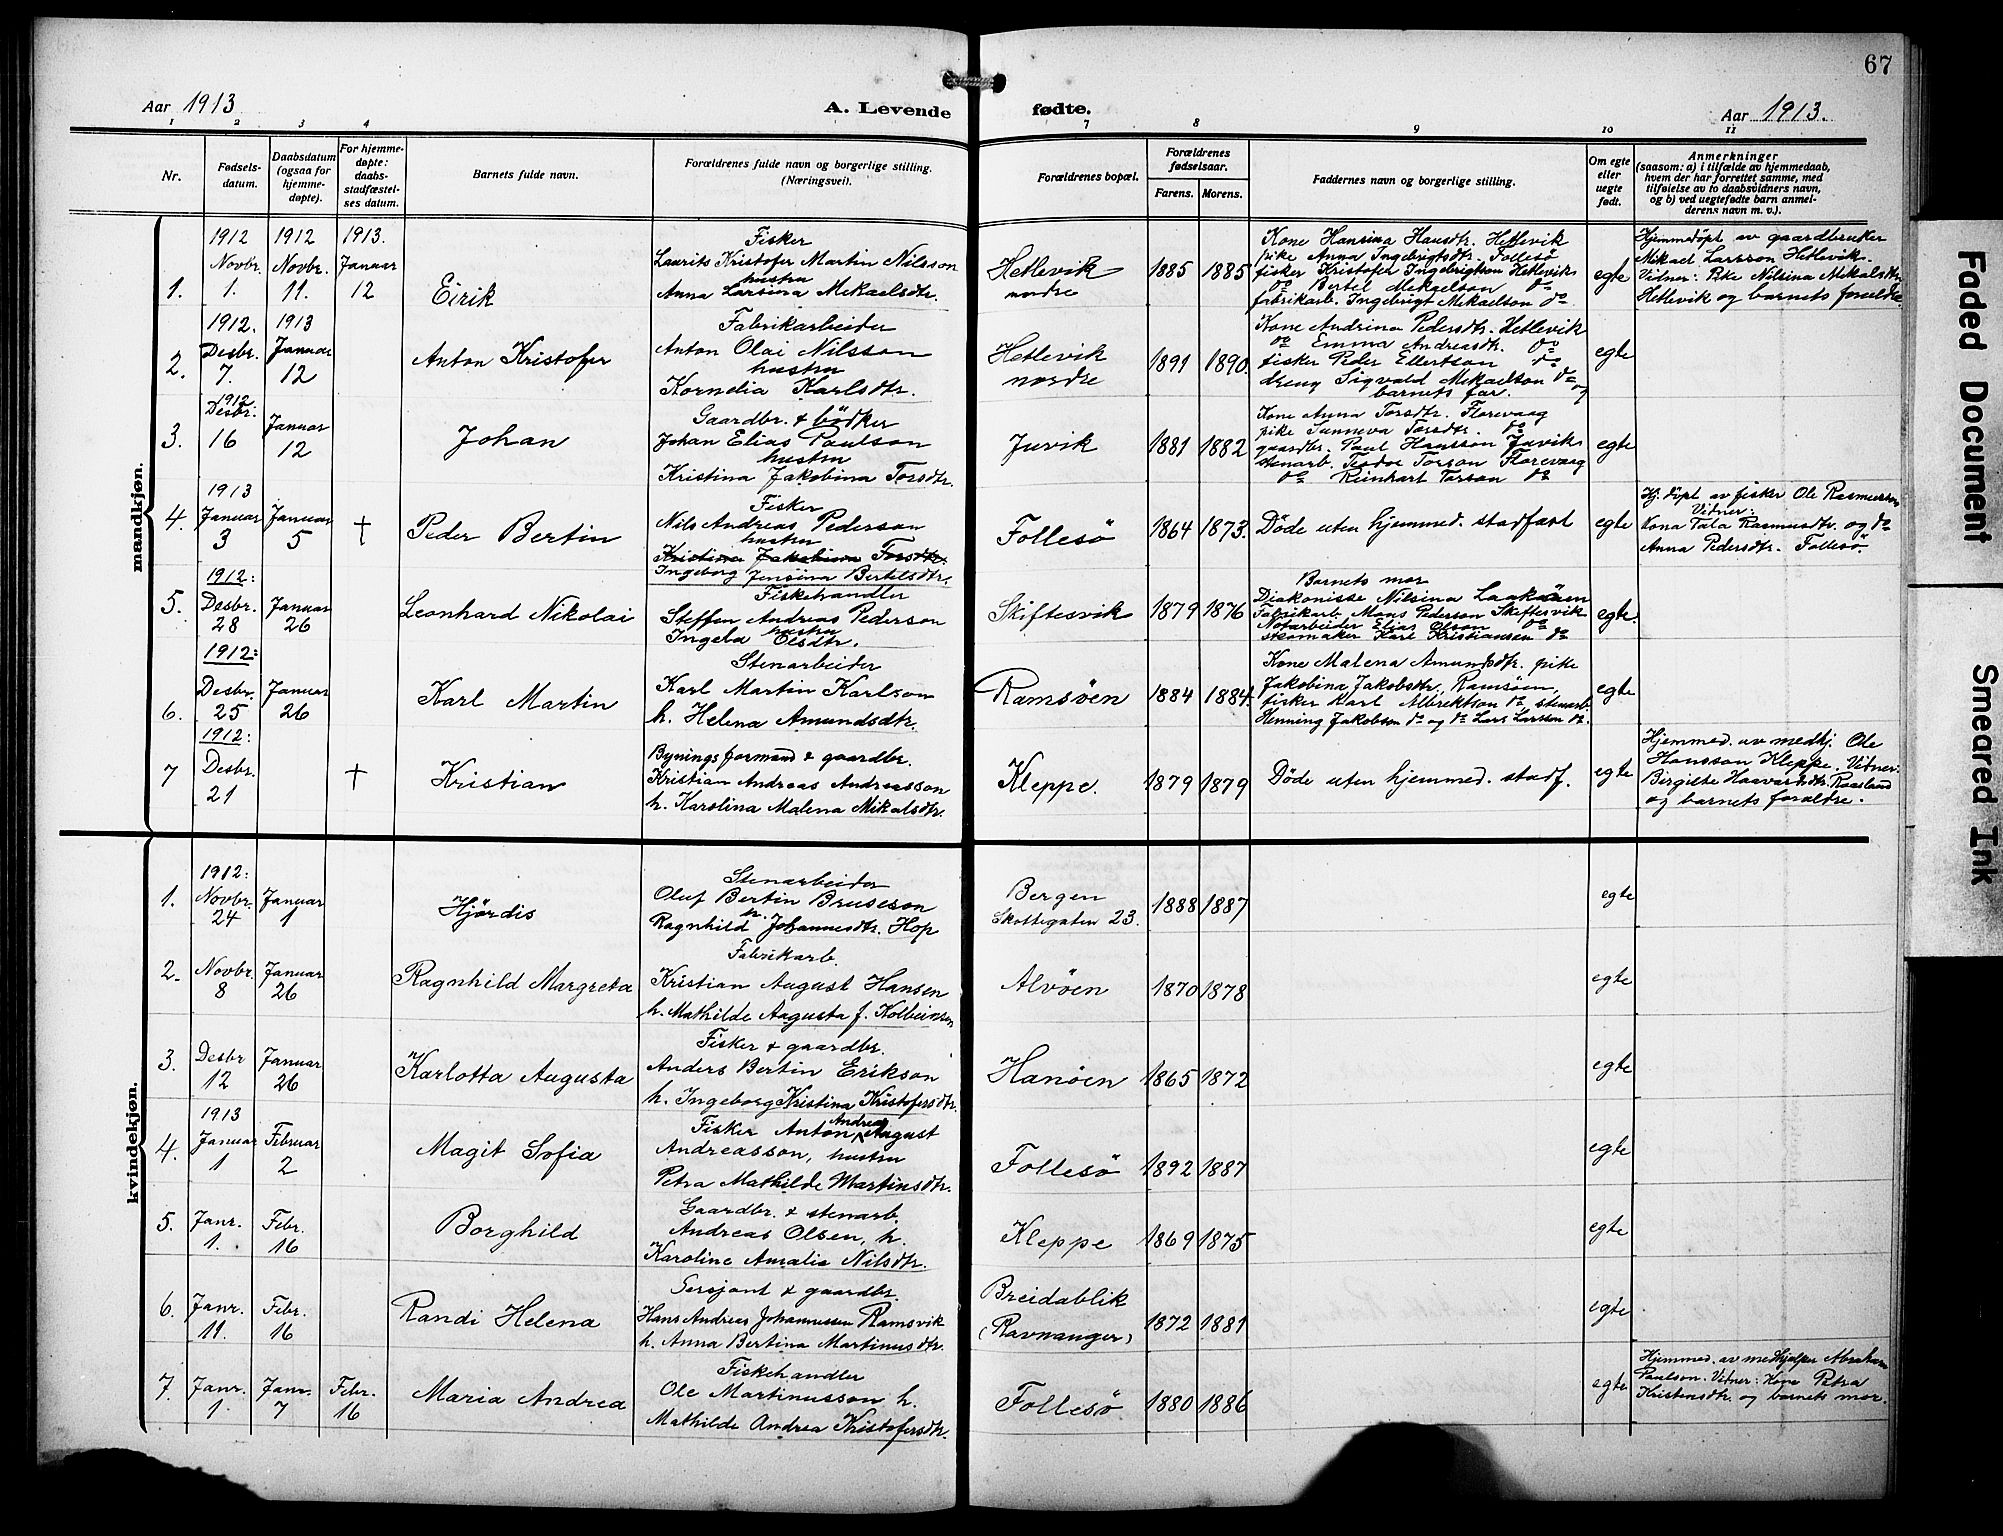 67
Aar 1913
A. Levende
fødte.
Aar 1913.
1 2 3 4 7 8 9 10 11
Nr.
Fødsels-
datum.
Daabsdatum
(ogsaa for
hjemme-
døpte).
For hjemme-
døpte:
daabs-
stadfæstel-
ses datum.
Barnets fulde navn.
Forældrenes fulde navn og borgerlige stilling.
(Næringsvei).
Forældrenes bopæl.
Forældrenes
fødselsaar.
Farens. Morens.
Faddernes navn og borgerlige stilling.
Om egte
eller
uegte
født.
Anmerkninger
(saasom: a) i tilfælde av hjemmedaab,
hvem der har forrettet samme, med
tilføielse av to daabsvidners navn,
og b) ved uegtefødte barn anmel-
derens navn m. v.).
mandkjøn.
1.
1912
Novbr.
1.
1912
Novbr.
11.
1913.
Januar
12
Eirik
Fisker
Laurits Kristofer Martin Nilsson
hustru
Anna Larsina Mekaelsdtr.
Hetlevik
nordre
1885
1885
Kone Hansina Hansdtr. Hetlevik
pike Anna Ingebrigtsdtr. Follesö
fisker Kristofer Ingebrigtson Hetlevik
do Bertel Mekaelson do
fabrikarb. Ingebrigt Mekaelson do
egte
Hjemmedöpt av gaardbruker
Mikael Larsson Hetlevik.
Vidner: Pike Nilsina Mikalsdtr
Hetlevik og barnets foreldre
2.
1912.
Desbr.
7.
1913
Januar
12
Anton Kristofer
Fabrikarbeider
Anton Olai Nilsson
hustru
Kornelia Karlsdtr.
Hetlevik
nordre
1891
1890.
Kone Andrina Pedersdtr. Hetlevik
do Emma Andreasdtr. do
fisker Peder Ellertson do
dreng Sigvald Mekaelson do og
barnets far.
egte
3.
1912
Desbr.
16
Januar
12
Johan
Gaardbr. & bödker
Johan Elias Paulson
hustru
Kristina Jakobina Torsdtr.
Juvik
1881
1882
Kone Anna Torsdtr. Florevaag
pike Sunneva Torsdtr. do
gaardbr. Paul Hansson Juvik
stenarb. Teodor Torson Florevaag
do Reinhart Torson do
egte
4.
1913
Januar
3
Januar
5
†
Peder Bertin
Fisker
Nils Andreas Pederson
hustru
Kristina Jakobina Torsdtr.
Ingeborg Jensina Bertelsdtr.
Follesö
1864
1873.
Döde uten hjemmed. stadfæst
egte
Hj. döpt av fisker Ole Rasmusson
Vidner:
Kona Tala Rasmusdtr. og do
Anna Pedersdtr. Follesö
5.
1912:
Desbr.
28
Januar
26
Leonhard Nikolai
Fiskehandler
Steffen Andreas Pederson
hustru
Ingela Olsdtr.
Skiftesvik
1879
1876
Barnets mor
Diakonisse Nilsina
Fabrikarb. Mons Pederson Skiftesvik
Notarbeider Elias Olson do
skomaker Karl Kristiansen do
egte.
6.
1912:
Desbr.
25
Januar
26
Karl Martin
Stenarbeider
Karl Martin Karlson
h. Helena Amundsdtr.
Ramsöen
1884
1884.
Kone Malena Amundsdtr. pike
Jakobina Jakobsdtr., Ramsöen,
fisker Karl Albrektson do, stenarb.
Henning Jakobson do og do Lars Larsson do
egte
7
1912:
Desbr.
21
†
Kristian
Bygningsformand & gaardbr.
Kristian Andreas Andreasson
h. Karolina Malena Mikalsdtr.
Kleppe.
1879
1879
Döde uten hjemmed. stadf.
egte
Hjemmed. av medhj. Ole
Hansson Kleppe. Vitner:
Birgitte Haavardsdtr.
og barnets foreldre.
kvindekjøn.
1.
1912:
Novbr.
24
Januar
1
Hjørdis
Stenarbeider
Oluf Bertin Bruseson
h.
Ragnhild Johannesdtr. Hop
Bergen
Skottegaten 23.
1888
1887
egte
2.
Novbr.
8
Januar
26
Ragnhild Margreta
Fabrikarb.
Kristian August Hansen
h. Mathilde Augusta f. Kolbeinsen
Alvöen
1870
1878
egte
3.
Desbr
12
Januar
26
Karlotta Augusta
Fisker & gaardbr.
Anders Bertin Erikson
h. Ingeborg Kristina Kristofersdtr.
Hanöen
1865
1872
egte
4.
1913
Januar
1
Februar
2
Magit Sofia
Fisker Anton Andreas August
Andreasson, hustru
Petra Mathilde Martinsdtr.
Follesö
1892
1887
egte
5.
Janr.
1.
Febr.
16
Borghild
Gaardbr. & stenarb.
Andreas Olsen, h.
Karoline Amalia Nilsdtr.
Kleppe
1869
1875
egte
6.
Janr.
11.
Febr.
16
Randi Helena
Sersjant & gaardbr.
Hans Andreas Johannessen Ramsvik
h. Anna Bertina Martinusdtr.
Breidablik
(Ravnanger)
1872
1881
egte
7.
Janr.
1.
Janr.
7
Febr.
16
Maria Andrea
Fiskehandler
Ole Martinusson h.
Mathilde Andrea Kristofersdtr.
Follesö
1880
1886
egte
Hjemmed. av medhjelper Abraham
Paulson. Vitner: Kone Petra
Kristensdtr. og barnets mor.
Faded Document
Smeared Ink